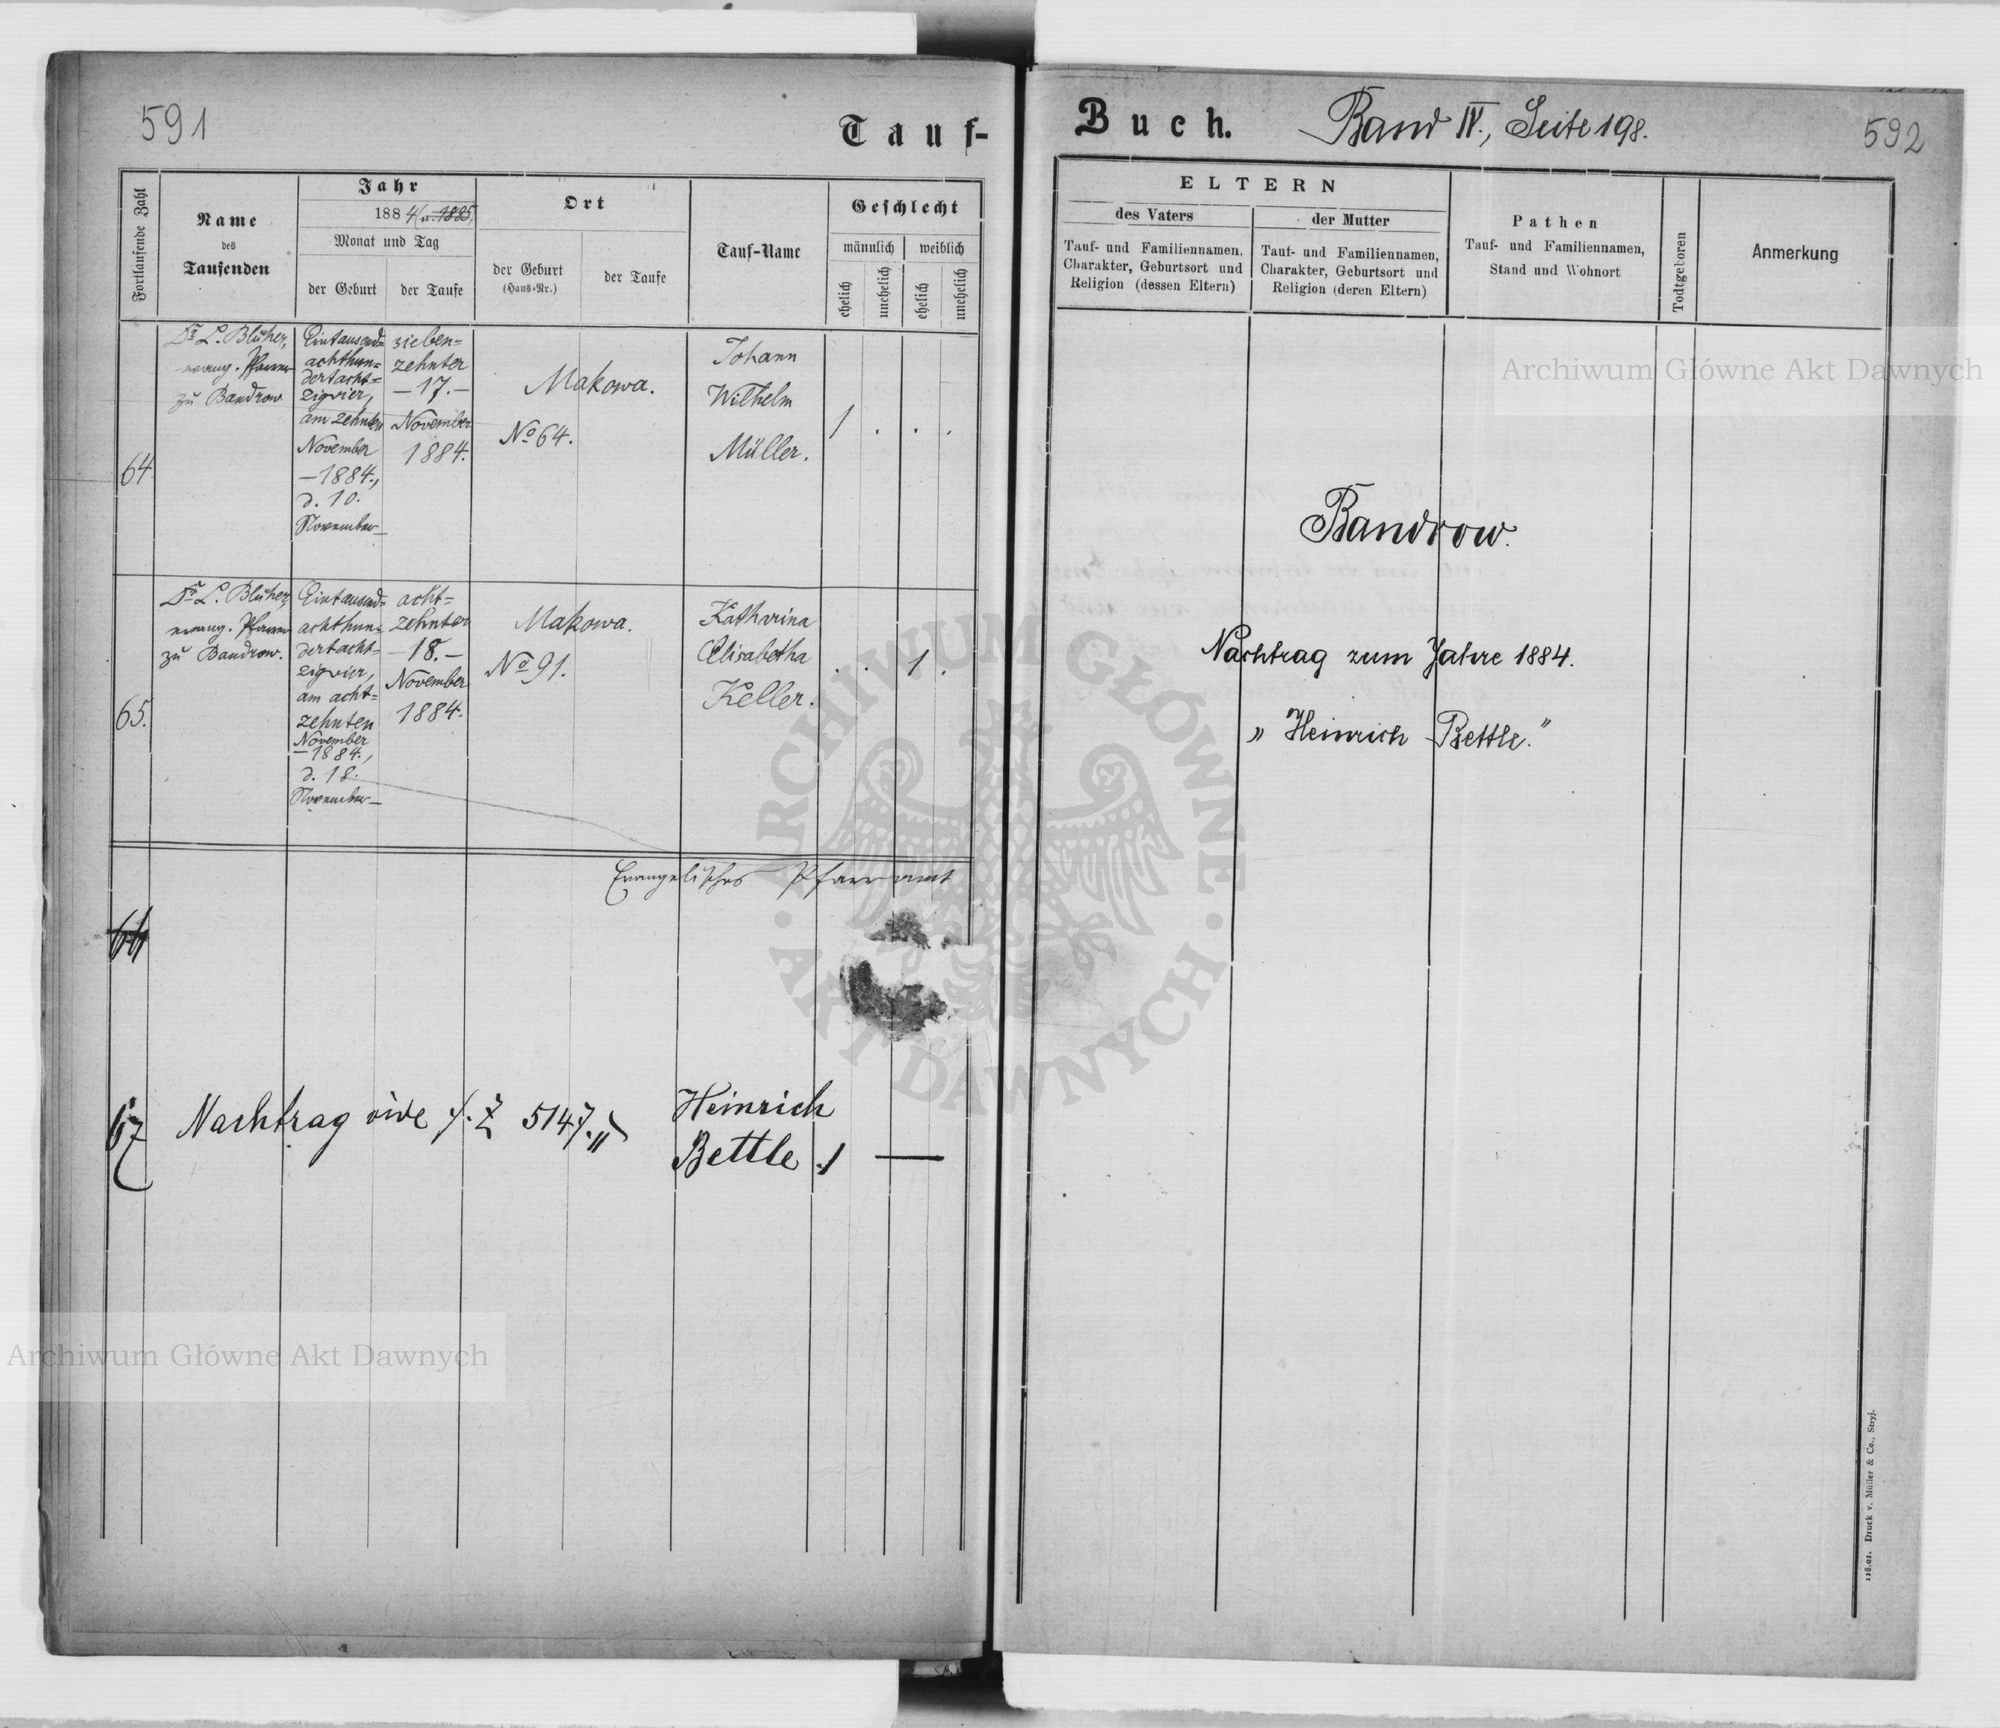 591
Tauf-
Fortlaufende Zahl
Name
des
Taufenden
Jahr
1884 (u. 1885)
Monat und Tag
der Geburt
der Taufe
Ort
der Geburt
(Haus-Nr.)
der Taufe
Tauf-Name
Geschlecht
männlich
weiblich
ehelich
unehelich
ehelich
unehelich
64
Dr. L. Blüher,
evang. Pfarrer
zu Bandrow
Eintausend=
achthun=
dertacht=
zigvier,
am zehnten
November
—1884.,
d. 10.
November—
sieben=
zehnter
—17.—
November
1884.
Makowa.
No 64.
Johann
Wilhelm
Müller.
1 . . .
65.
Dr. L. Blüher,
evang. Pfarrer
zu Bandrow.
Eintausend=
achthun=
dertacht=
zigvier,
am acht=
zehnten
November
—1884.,
d. 18.
November—
acht=
zehnter
—18.—
November
1884.
Makowa.
No 91.
Katharina
Elisabetha
Keller.
. . 1 .
Evangelisches Pfarramt
66
67
Nachtrag vide
Z 5147.
Heinrich
Bettle
1 —
Buch.
Band IV., Seite 198.
592
ELTERN
des Vaters
Tauf- und Familiennamen,
Charakter, Geburtsort und
Religion (dessen Eltern)
der Mutter
Tauf- und Familiennamen,
Charakter, Geburtsort und
Religion (deren Eltern)
Pathen
Tauf- und Familiennamen,
Stand und Wohnort
Todtgeboren
Anmerkung
Bandrow.
Nachtrag zum Jahre 1884.
„Heinrich Bettle."
118.01. Druck v. Müller & Co., Stryj.
Archiwum Główne Akt Dawnych
ARCHIWUM GŁÓWNE · AKT DAWNYCH ·
Archiwum Główne Akt Dawnych